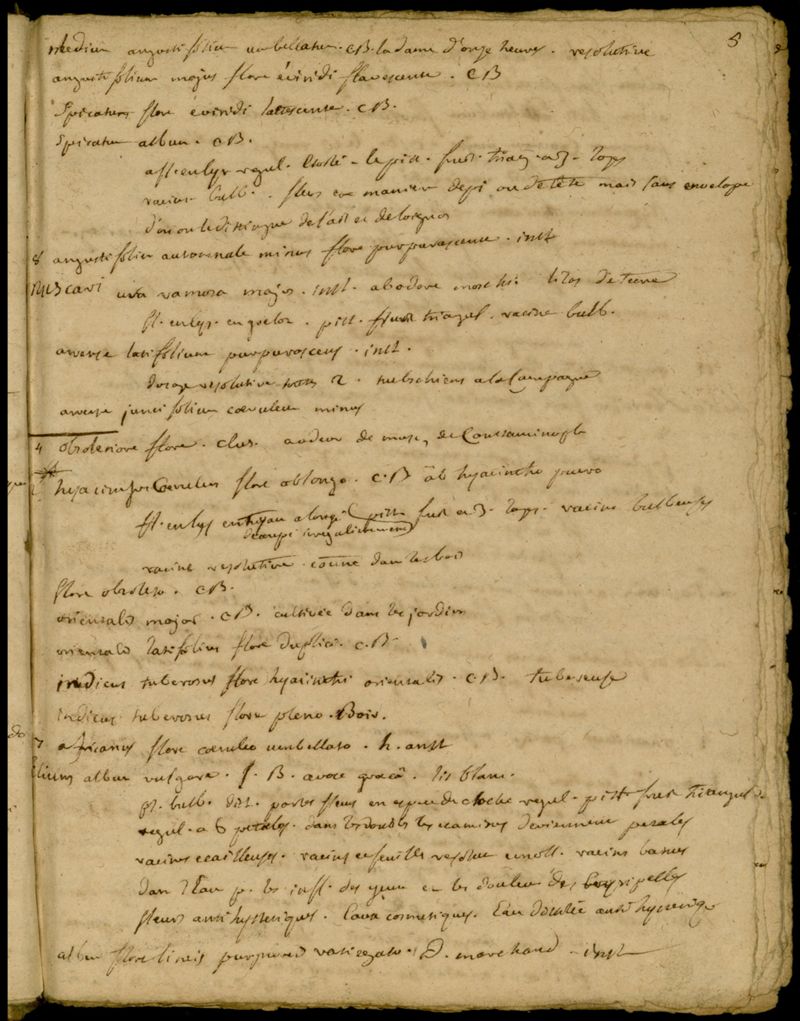 5
medium angustifolium umbellatum. CB. la dame d'onze heures. resolutive
angustifolium majus flore è viridi flavescente. CB
Spicatum flore è viridi lactescente. CB.
Spicatum album. CB.
racine bulb. fleur en maniere d'epi ou de tete mais sans envelope
d'ou on le distingue de l'ail et de l'oignon
8 angustifolium autumnale minus flore purpurascente. inst
muscari uva ramosa major. inst. ab odore moschi. lilas de terre
fl. en lys. en grelot. pist. fruit triangul. racine bulb.
arvense latifolium purpurascens. inst.
a la Campagne
arvense juncifolium cœruleum minus
4 obsoletiore flore. clus. audeur de musc,
hyacinthus Cœruleus flore oblongo. CB ab hyacintho puero
fl. en lys en tuyau alongé pist. fruit a 3 loges. racine bulbeuse
decoupé
racine resolutive. coñue dans les bois
flore obsoleto. CB.
orientalis major. CB. cultivée dans les jardins
orientalis latifolius flore duplici. CB
indicus tuberosus flore hyacinthi orientalis. CB. tubereuse
indicus tuberosus flore pleno.
7 africanus flore cœruleo umbellato. h.
lilium album vulgare. J. B. a voce græcâ. lis blanc.
fl. bulb. dist. portes fleurs en espece de cloche regul. pist. fruit triangul.
regul. a 6 petales. dans les doubles les etamines deviennent petales
racines ecailleuses. racine et feuilles resolut emoll. racine
dans l'eau p. les infl. des yeux et les douleurs des erysipelles
fleurs anti hysteriques. l'eau cosmetique. Eau distilée anti hysterique
album flore lineis purpureis variegato. D. marchand. inst